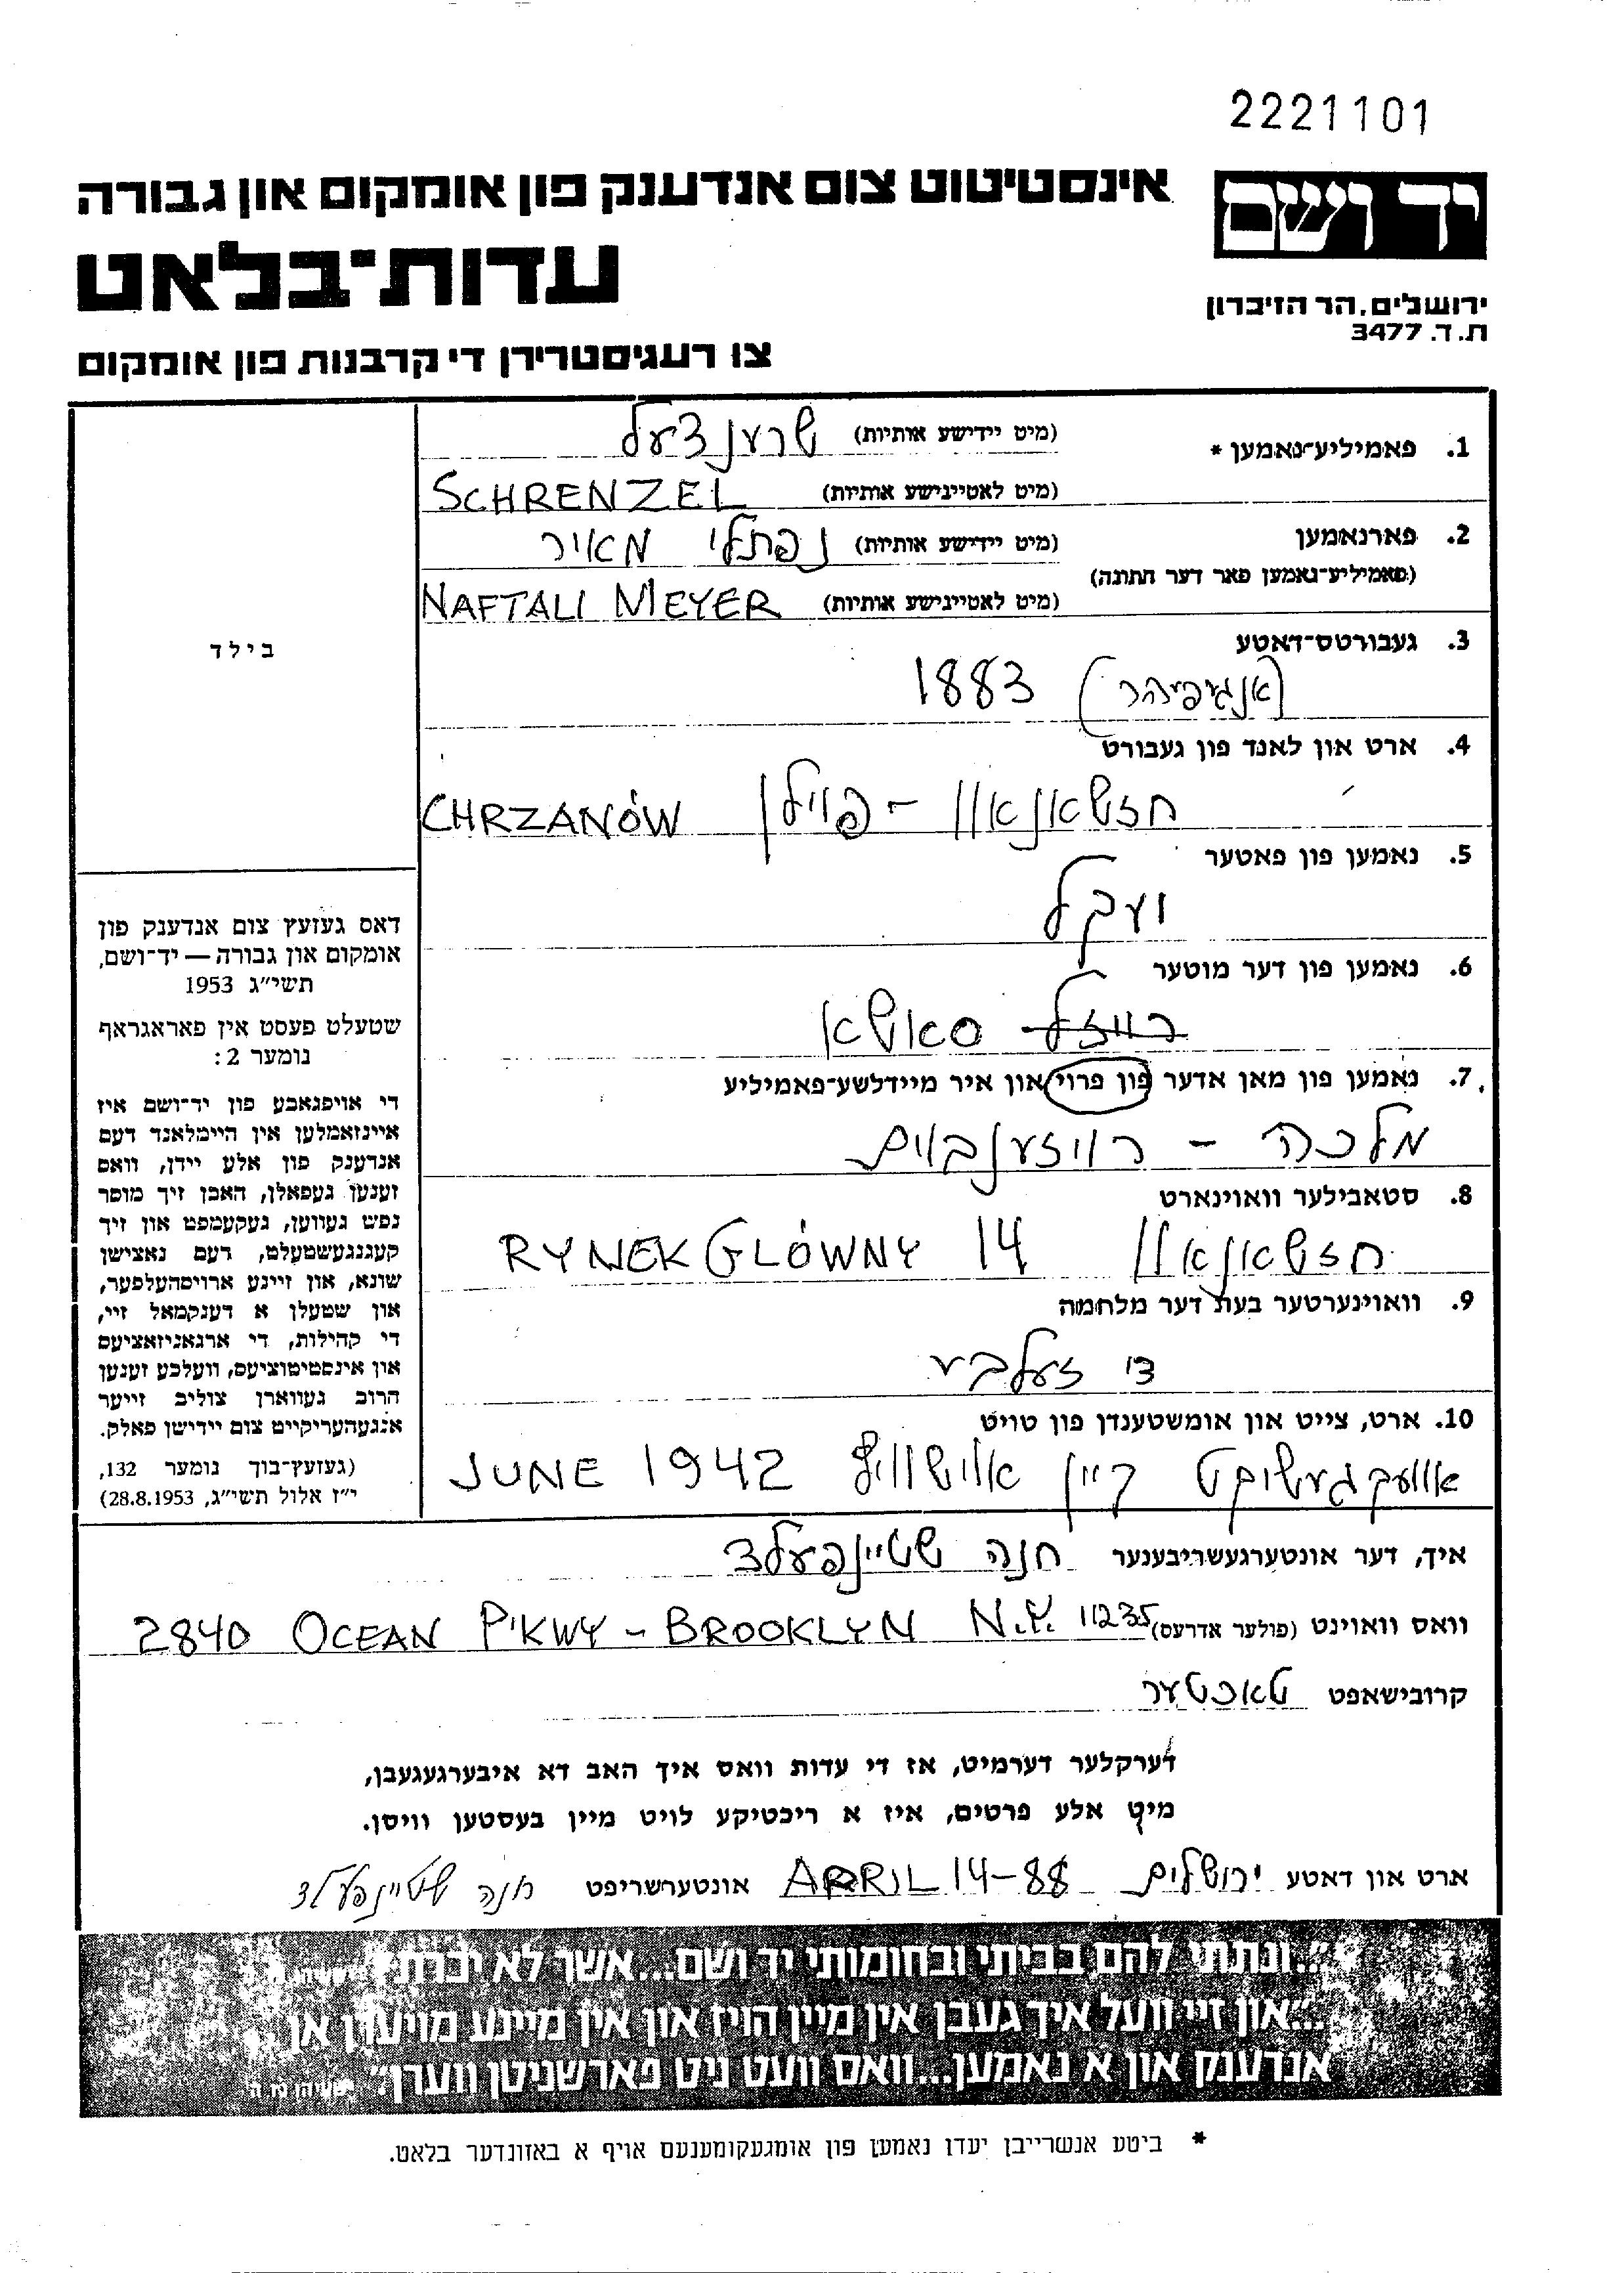 2221101
יד ושם
אינסטיטוט צום אנדענק פון אומקום און גבורה
עדות־בלאט
ירושלים, הר הזיכרון
ת.ד. 3477
צו רעגיסטרירן די קרבנות פון אומקום
1. פאמיליע־נאמען * (מיט יידישע אותיות) שרענצעל
(מיט לאטיינישע אותיות) SCHRENZEL
2. פארנאמען (מיט יידישע אותיות) נפתלי מאיר
(פאמיליע־נאמען פאר דער חתונה)
(מיט לאטיינישע אותיות) NAFTALI MEYER
3. געבורטס־דאטע
(אנגיפיהר) 1883
4. ארט און לאנד פון געבורט
חזשאנאוו - פוילן CHRZANÓW
5. נאמען פון פאטער
6. נאמען פון דער מוטער
רויזל סאשא
7. נאמען פון מאן אדער פון פרוי און איר מיידלשע־פאמיליע
מלכה - רויזענבוים
8. סטאבילער וואוינארט
חזשאנאוו RYNEK GLÓWNY 14
9. וואוינערטער בעת דער מלחמה
די זעלבע
10. ארט, צייט און אומשטענדן פון טויט
אוועקגעשיקט קיין אוישוויץ JUNE 1942
בילד
דאס געזעץ צום אנדענק פון
אומקום און גבורה — יד־ושם,
תשי״ג 1953
שטעלט פעסט אין פאראגראף
נומער 2:
די אויפגאבע פון יד־ושם איז
איינזאמלען אין היימלאנד דעם
אנדענק פון אלע יידן, וואס
זענען געפאלן, האבן זיך מוסר
נפש געווען, געקעמפט און זיך
קעגנגעשטעלט, דעם נאצישן
שונא, און זיינע ארויסהעלפער,
און שטעלן א דענקמאל זיי,
די קהילות, די ארגאניזאציעס
און אינסטיטוציעס, וועלכע זענען
חרוב געווארן צוליב זייער
אנגעהעריקייט צום יידישן פאלק.
(געזעץ־בוך נומער 132,
י״ז אלול תשי״ג, 28.8.1953)
איך, דער אונטערגעשריבענער חנה שטיינפעלד
וואס וואוינט (פולער אדרעס) 2840 OCEAN P'KWY - BROOKLYN N.Y. 11235
קרובישאפט טאכטער
דערקלער דערמיט, אז די עדות וואס איך האב דא איבערגעגעבן,
מיט אלע פרטים, איז א ריכטיקע לויט מיין בעסטען וויסן.
ארט און דאטע ירושלים APRIL 14-88 אונטערשריפט חנה שטיינפעלד
״...ונתתי להם בביתי ובחומותי יד ושם...אשר לא יכרת״
״...און זיי וועל איך געבן אין מיין הויז און אין מיינע מויערן אן
אנדענק און א נאמען...וואס וועט ניט פארשניטן ווערן״ ישעיהו נו ה
* ביטע אנשרייבן יעדן נאמען פון אומגעקומענעם אויף א באזונדער בלאט.